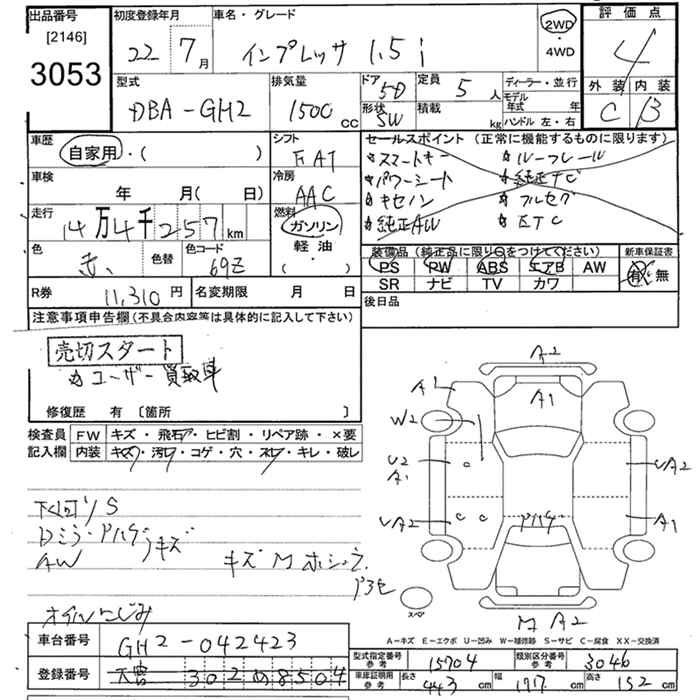 出品番号
[2146]
3053
初度登録年月
22年 7月
車名・グレード
インプレッサ 1.5i
2WD
・
4WD
評価点
4
外装 内装
C B
型式
DBA-GH2
排気量
1500 cc
ドア
5D
形状
SW
定員
5 人
積載
kg
ディーラー・並行
モデル年式 年
ハンドル 左・右
車歴
自家用・( )
シフト
FAT
車検
年 月( 日)
冷房
AAC
走行
14万4千257km
燃料
ガソリン
軽油
・( )
色
赤、
色替
色コード
69Z
セールスポイント (正常に機能するものに限ります)
スマートキー ルーフレール
パワーシート 純正ナビ
キセノン フルセグ
純正AW ETC
装備品 (純正品に限り○をつけてください)
PS PW ABS エアB AW
SR ナビ TV カワ
新車保証書
有・無
R券 11,310円
名変期限 月 日
後日品
注意事項申告欄 (不具合内容等は具体的に記入して下さい)
売切スタート
ユーザー買取車
修復歴 有 〔箇所 〕
検査員記入欄
FW キズ・飛石・ヒビ割・リペア跡・×要
内装 キズ・汚レ・コゲ・穴・スレ・キレ・破レ
下回りS
Dミラー・Rバンパーキズ
AW
キズ M ホシュウ
オイルにじみ
A2
A1
A1
W2
U2
A1
UA2
UA2
A1
M A2
スペア
A-キズ E-エクボ U-凹み W-補修跡 S-サビ C-腐食 XX-交換済
車台番号
GH2-042423
登録番号
302 8504
型式指定番号
参考
15704
類別区分番号
参考
3046
車庫証明用
参考
長さ 443 cm 幅 177 cm 高さ 152 cm